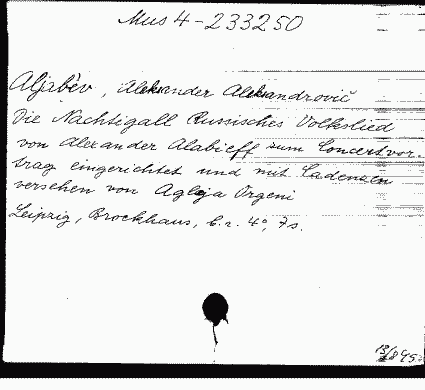 Mus 4-233250
Aljaběv, Aleksander Aleksandrovič
Die Nachtigall Russisches Volkslied
von Alexander Alabieff zum Concertvor-
trag eingerichtet und mit Cadenzen
versehen von Aglaja Orgeni
Leipzig, Brockhaus, b.r. 4°, 7s.